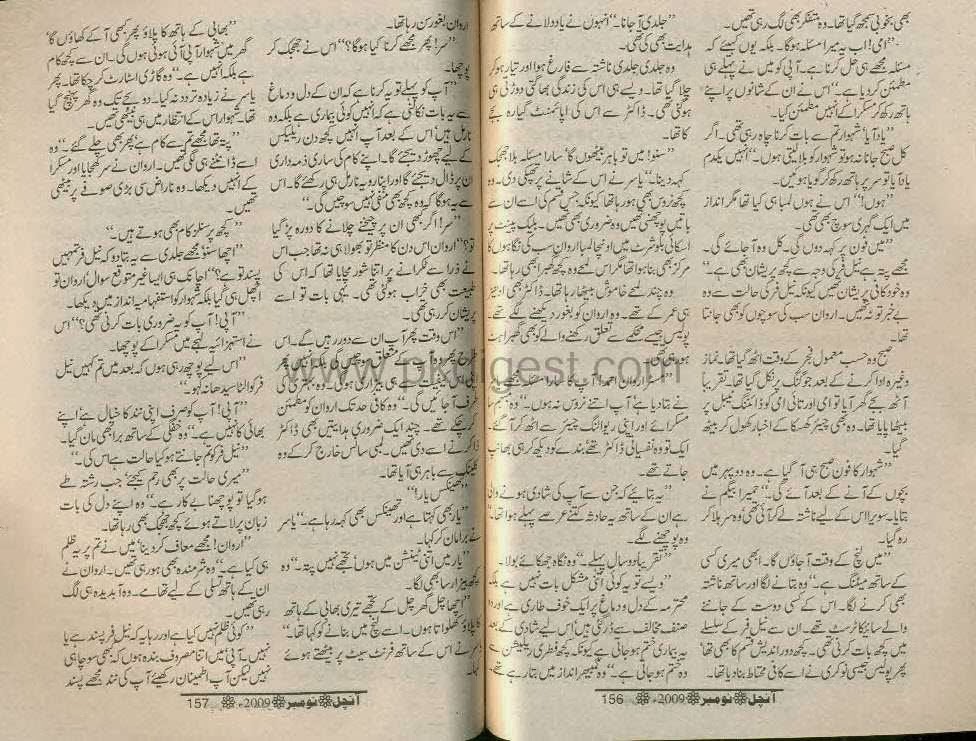 بھی بخوبی سمجھ گیا تھا۔ وہ متفکر بھی لگ رہی تھیں۔
”امی! اب یہ میرا مسئلہ ہوگا۔ بلکہ یوں کہیئے کہ
مسئلہ مجھے ہی حل کرنا ہے۔ آپی کو میں نے پہلے ہی
مطمئن کر دیا ہے۔“ اس نے ان کے شانوں پر اپنے
ہاتھ رکھ کر مسکرا کے انہیں مطمئن کیا۔
”یاد آیا‘ شہوار تم سے بات کرنا چاہ رہی تھی۔ اگر
کل صبح جانا نہ ہو تو شہوار کو بلا لیتی ہوں۔“ انہیں یکدم
یاد آیا تو سر پر ہاتھ رکھ کر گویا ہوئیں۔
”ہوں!“ اس نے ہوں لمبا ہی کیا تھا مگر انداز
میں ایک گہری سوچ بھی تھی۔
”میں فون پر کہہ دوں گی۔ کل وہ آ جائے گی۔
مجھے پتہ ہے نیل فر کی وجہ سے کچھ پریشان بھی ہے۔“
وہ خود کافی پریشان تھیں کیونکہ نیل فر کی حالت سے وہ
بے خبر تو نہ تھیں۔ اروان سب کی سوچوں کو بھی جانتا
تھا۔
صبح وہ حسب معمول فجر کے وقت اٹھ گیا تھا۔ نماز
وغیرہ ادا کرنے کے بعد جوگنگ پر نکل گیا تھا۔ تقریباً
آٹھ بجے گھر آیا تو امی اور تائی امی کو ڈائننگ ٹیبل پر
بیٹھا پایا تھا۔ وہ بھی چیئر کھسکا کے اخبار کھول کر بیٹھ
گیا۔
”شہوار کا فون صبح ہی آ گیا ہے۔ وہ دوپہر میں
بچوں کے آنے کے بعد آئے گی۔“ حمیرا بیگم نے
بتایا۔ سویرا اس کے لیے ناشتہ لے کر آئی تھی وہ سر ہلا کر
رہ گیا۔
”میں لنچ کے وقت آ جاؤں گا۔ ابھی میری کسی
کے ساتھ میٹنگ ہے۔“ وہ بتانے لگا اور ساتھ ناشتہ
بھی کرنے لگا۔ اس کے کسی دوست کے جاننے
والے سائیکاٹرسٹ تھے۔ ان سے نیل فر کے سلسلے
میں کچھ بات کرنی تھی۔ کچھ دور اندیش قسم کا بھی تھا
پھر پولیس جیسی نوکری نے اسے کافی محتاط بنا دیا تھا۔
”جلدی آ جانا۔“ انہوں نے یاد دلانے کے ساتھ
ہدایت بھی کی تھی۔
وہ جلدی جلدی ناشتہ سے فارغ ہوا اور تیار ہو کر
چلا گیا تھا۔ ویسے ہی اس کی زندگی بھاگتی دوڑتی ہی
ہو گئی تھی۔ ڈاکٹر سے اس کی اپائمنٹ گیارہ بجے
کا تھا۔
”سنو! میں تو باہر بیٹھوں گا‘ سارا مسئلہ بلا جھجک
کہہ دینا۔“ یاسر نے اس کے شانے پر تھپکی دی۔ وہ
کچھ نروس بھی ہو رہا تھا کیونکہ جس قسم کی اسے ان سے
باتیں پوچھنی تھیں وہ ضروری بھی تھیں۔ بلیک پینٹ پر
اسکائی بلو شرٹ میں اونچا لمبا اروان سب کی نگاہوں کا
مرکز بھی بنا ہوا تھا مگر اس لمحے وہ کچھ گھبرا بھی رہا تھا۔
وہ چند لمحے خاموش بیٹھا رہا تھا۔ ڈاکٹر بھی ادھیڑ
ہی عمر کے تھے۔ وہ اروان کو بغور دیکھنے لگے تھے۔
پولیس جیسے محکمے سے تعلق رکھنے والے کو بھی گھبراہٹ
ہو رہی تھی۔
”مسٹر اروان احمد! آپ کا سارا مسئلہ مجھے
نے بتا دیا ہے‘ آپ اتنے نروس نہ ہوں۔“ وہ
مسکرائے اور اپنی ریوالونگ چیئر سے اٹھ کر آ گئے۔
ایک تو وہ نفسیاتی ڈاکٹر تھے بندے کو دیکھ کر ہی بھانپ
جاتے تھے۔
”یہ بتائیے کہ جن سے آپ کی شادی ہونے والی
ہے ان کے ساتھ یہ حادثہ کتنے عرصے پہلے ہوا تھا۔“
وہ پوچھنے لگے۔
”تقریباً دو سال پہلے۔“ وہ نگاہ جھکائے بولا۔
”ویسے تو یہ کوئی اتنی مشکل بات نہیں ہے بلکہ
محترمہ کے دل و دماغ پر ایک خوف طاری ہے اور وہ
صنف مخالف سے ڈر گئی ہیں‘ اس لیے شادی کے بعد
یہ بیماری ختم ہو جاتی ہے کیونکہ کچھ فطری ریلیکشن سے
وہ ختم ہو جاتی ہے۔“ وہ گمبھیر انداز میں بتا رہے تھے۔
آنچل ❁ نومبر ❁ 2009ء ❁ 156
اروان بغور سن رہا تھا۔
”سر! پھر مجھے کرنا کیا ہوگا؟“ اس نے جھجک کر
پوچھا۔
”آپ کو پہلے تو یہ کرنا ہے کہ ان کے دل و دماغ
سے یہ بات نکالنی ہے کہ انہیں کوئی بیماری ہے بلکہ وہ
نارمل ہیں‘ اس کے بعد آپ انہیں کچھ دن ریلیکس
کے لیے چھوڑ دیجئے گا۔ اپنے کام کی ساری ذمہ داری
ان پر ڈال دیجئے گا اور اپنا رویہ نارمل ہی رکھئے گا۔ اس
سے یہ ہوگا کہ وہ کچھ بھی منفی نہیں سوچیں گی۔“
”سر! اگر بھی ان پر چیخنے چلانے کا دورہ پڑ گیا
تو؟“ اروان اس دن کا منظر تو بھولا ہی نہ تھا جب اس
نے ذرا سے ٹکرانے پر اتنا شور مچایا تھا کہ اس کی
طبیعت بھی خراب ہو گئی تھی۔ یہی بات تو اسے
پریشان کر رہی تھی۔
”اس وقت پھر آپ ان سے دور ہیں گے۔ اس
طرح پھر وہ آپ کے متعلق سوچیں گی بلکہ خود پھر
اپنی کیفیت سے ہی بیزاری ہوگی۔ وہ بہتری کی
طرف آ جائیں گی۔“ وہ کافی حد تک اروان کو مطمئن
کر چکے تھے۔ چند ایک ضروری ہدایتیں بھی ڈاکٹر
ذاکر نے اسے دی تھیں۔ لمبی سانس خارج کر کے وہ
کلینک سے باہر ہی آیا تھا۔
”تھینکس یار!“
”یار بھی کہتا ہے اور تھینکس بھی کہہ رہا ہے۔“ یاسر
نے برا مان کر کہا۔
”یار میں اتنی ٹینشن میں ہوں‘ تجھے نہیں پتہ۔“ وہ
کچھ بیزار سا بھی لگا۔
”اچھا چل گھر چل کے تجھے تیری بھابی کے ہاتھ
کا پلاؤ کھلواتا ہوں۔ اسے لنچ میں بنانے کو کہا تھا۔“
یاسر نے اس کے ساتھ فرنٹ سیٹ پر بیٹھتے ہوئے
کہا۔
”بھابی کے ہاتھ کا پلاؤ پھر کبھی آ کے کھاؤں گا‘
گھر میں شہوار آپی آئی ہوئی ہوں گی۔ ان سے کچھ کام
ہے بلکہ انہیں ہے۔“ وہ گاڑی اسٹارٹ کر چکا تھا۔ پھر
یاسر نے زیادہ تردد نہ کیا۔ دو بجے تک وہ گھر پہنچ گیا
تھا۔ شہوار اس کے انتظار میں ہی بیٹھی تھیں۔
”پتہ تھا مجھے تم سے کام ہے پھر بھی چلے گئے۔“ وہ
اسے ڈانٹنے ہی لگی تھیں۔ اروان نے سر کھجایا اور مسکرا
کے انہیں دیکھا۔ وہ ناراض سی بڑی صوفے پر بیٹھی
تھیں۔
”کچھ پرسنلز کام بھی ہوتے ہیں۔“
”اچھا سنو مجھے جلدی سے یہ بتا دو کہ نیل فر تمہیں
پسند تو ہے؟“ اچانک ہی ایسا غیر متوقع سوال‘ اروان تو
اچھل ہی گیا بلکہ شہوار کو استفہامیہ انداز میں دیکھا۔
”آپی! آپ کو یہ ضروری بات کرنی تھی؟“ اس
نے استہزائیہ لہجے میں مسکرا کے پوچھا۔
”اس لیے پوچھ رہی ہوں کہ بعد میں تم کہیں نیل
فر کو الٹا سیدھا نہ کہو۔“
”آپی! آپ کو صرف اپنی نند کا خیال ہے‘ اپنے
بھائی کا نہیں ہے۔“ وہ خفگی کے ساتھ برا بھی مان گیا۔
”نیل فر کو تم جانتے ہو کیا حالت ہے اس کی۔“
”میری حالت پر بھی رحم کیجئے‘ جب رشتہ طے
ہو گیا تو پوچھنا بے کار ہے۔“ وہ اپنے دل کی بات
زبان پر لاتے ہوئے کچھ جھجک بھی رہا تھا۔
”اروان! مجھے معاف کر دینا‘ میں نے تم پر یہ ظلم
ہی کیا ہے۔“ وہ شرمندہ بھی ہو رہی تھیں۔ اروان نے
ان کے ہاتھ تسلی کے لیے تھامے۔ وہ آبدیدہ ہی لگ
رہی تھیں۔
”کوئی ظلم نہیں کیا ہے اور رہا یہ کہ نیل فر پسند ہے یا
نہیں۔ آپی‘ میں اتنا مصروف بندہ ہوں کہ بھی سوچا ہی
نہیں لیکن آپ اطمینان رکھیئے آپ کی نند مجھے پسند
آنچل ❁ نومبر ❁ 2009ء ❁ 157
www.pkdigest.com